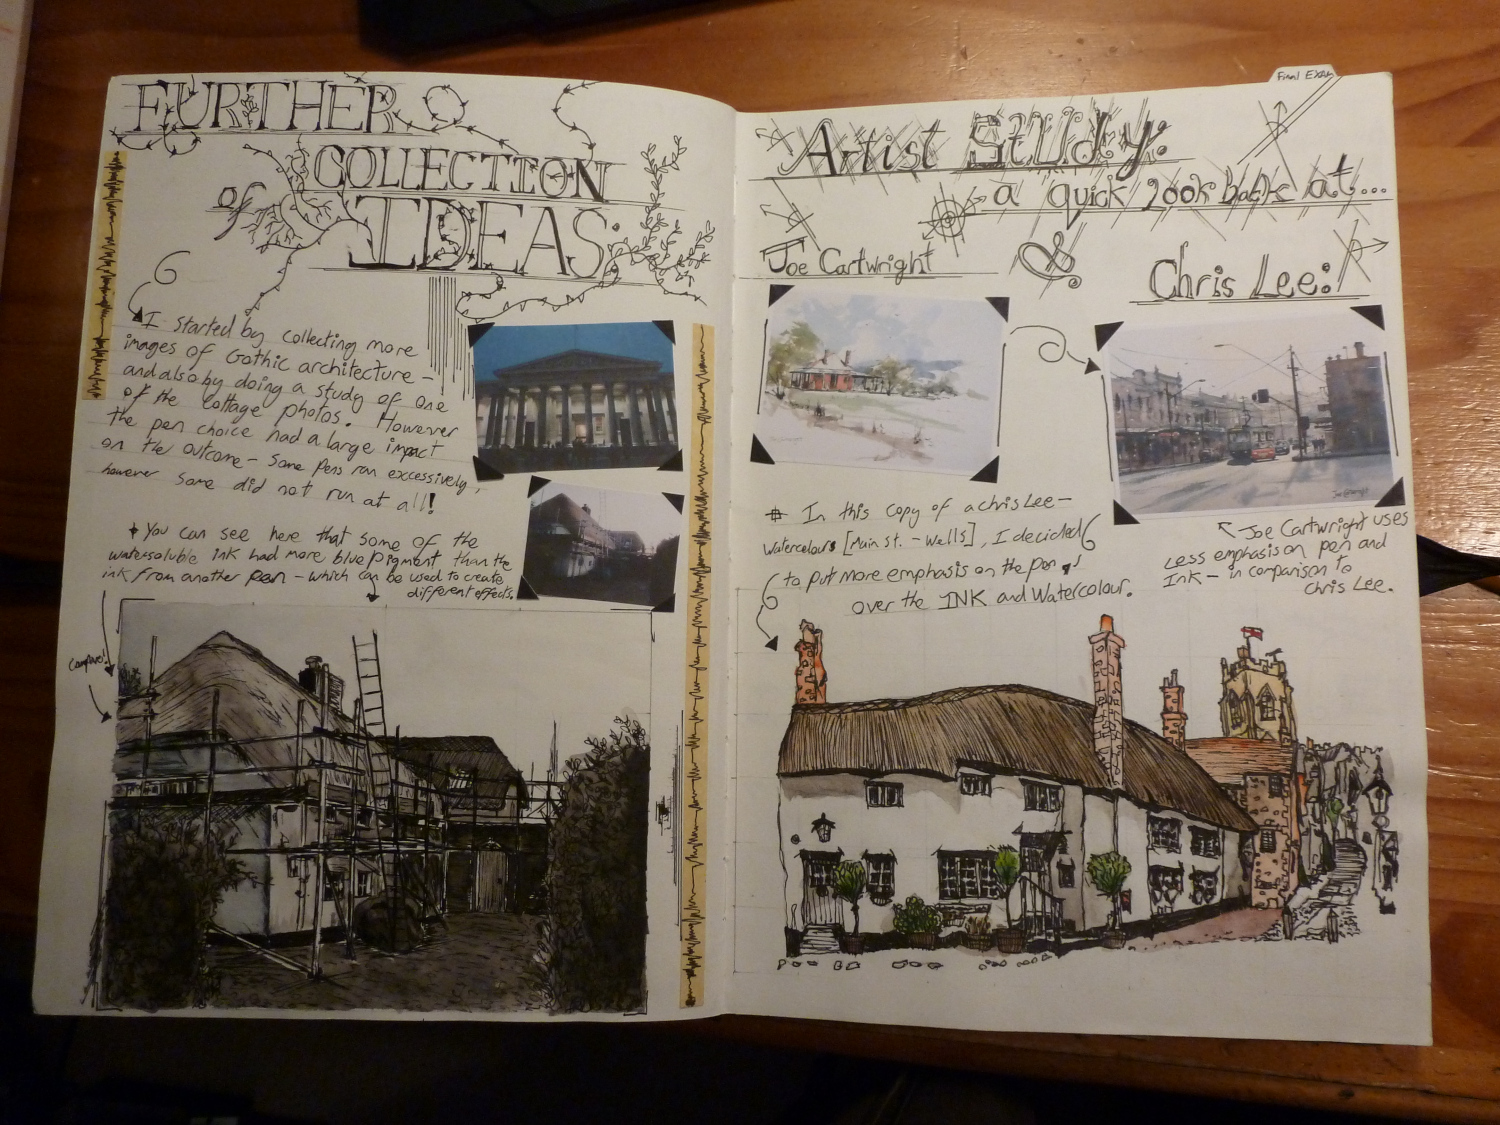 FURTHER
COLLECTION
of
IDEAS:
I started by collecting more
images of Gothic architecture –
and also by doing a study of one
of the cottage photos. However
the pen choice had a large impact
on the outcome – some pens ran excessively,
however some did not run at all!
You can see here that some of the
watersoluble ink had more blue pigment than the
ink from another pen – which can be used to create
different effects.
Compare!
Final Exam
Artist Study:
a quick look back at...
Joe Cartwright
&
Chris Lee:
In this copy of a chris Lee –
Watercolours [Main St. – Wells], I decided
to put more emphasis on the pen
over the INK and Watercolour.
Joe Cartwright uses
Less emphasis on pen and
Ink – in comparison to
Chris Lee.